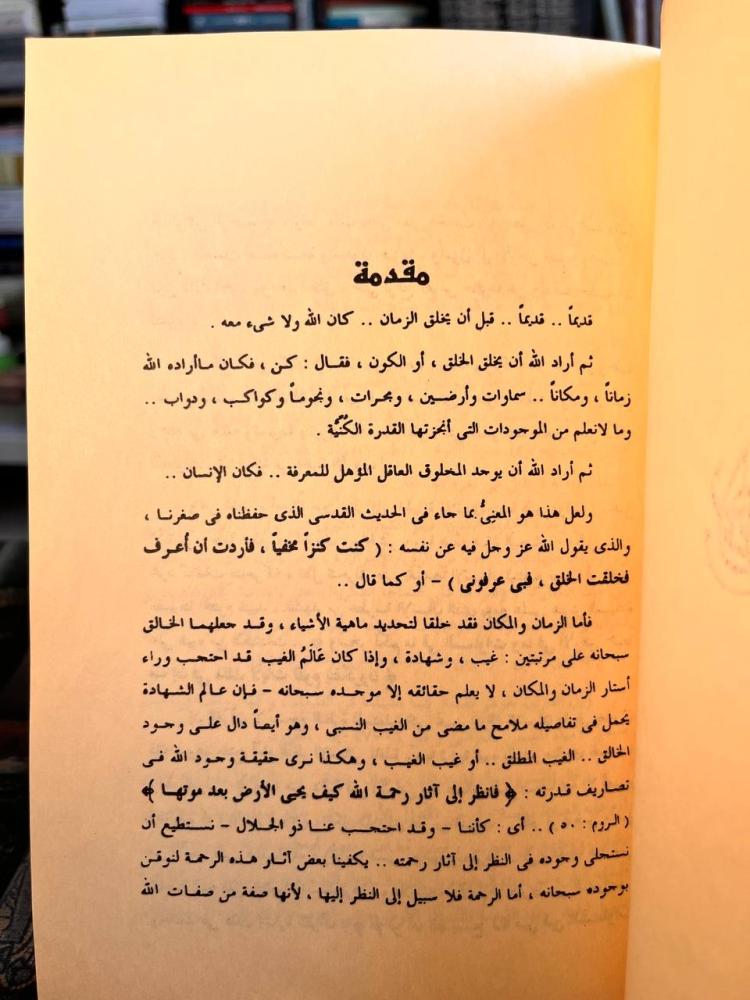 مقدمة
قديماً .. قديماً .. قبل أن يخلق الزمان .. كان الله ولا شىء معه .
ثم أراد الله أن يخلق الخلق ، أو الكون ، فقال : كن ، فكان ماأراده الله
زماناً ، ومكاناً .. سماوات وأرضين ، وبحرات ، ونجوماً وكواكب ، ودواب ..
وما لانعلم من الموجودات التى أنجزتها القدرة الكُنِّيَّة .
ثم أراد الله أن يوجد المخلوق العاقل المؤهل للمعرفة .. فكان الإنسان ..
ولعل هذا هو المعنِىُّ بما جاء فى الحديث القدسى الذى حفظناه فى صغرنا ،
والذى يقول الله عز وجل فيه عن نفسه : ( كنت كنزاً مخفياً ، فأردت أن أُعرف
فخلقت الخلق ، فبى عرفونى ) – أو كما قال ..
فأما الزمان والمكان فقد خلقا لتحديد ماهية الأشياء ، وقد جعلهما الخالق
سبحانه على مرتبتين : غيب ، وشهادة ، وإذا كان عَالَمُ الغيب قد احتجب وراء
أستار الزمان والمكان ، لا يعلم حقائقه إلا موجده سبحانه – فإن عالم الشهادة
يحمل فى تفاصيله ملامح ما مضى من الغيب النسبى ، وهو أيضاً دال على وجود
الخالق .. الغيب المطلق .. أو غيب الغيب ، وهكذا نرى حقيقة وجود الله فى
تصاريف قدرته : ﴿ فانظر إلى آثار رحمة الله كيف يحيى الأرض بعد موتها ﴾
( الروم : ٥٠ ) .. أى : كأننا – وقد احتجب عنا ذو الجلال – نستطيع أن
نستجلى وجوده فى النظر إلى آثار رحمته .. يكفينا بعض آثار هذه الرحمة لنوقن
بوجوده سبحانه ، أما الرحمة فلا سبيل إلى النظر إليها ، لأنها صفة من صفات الله